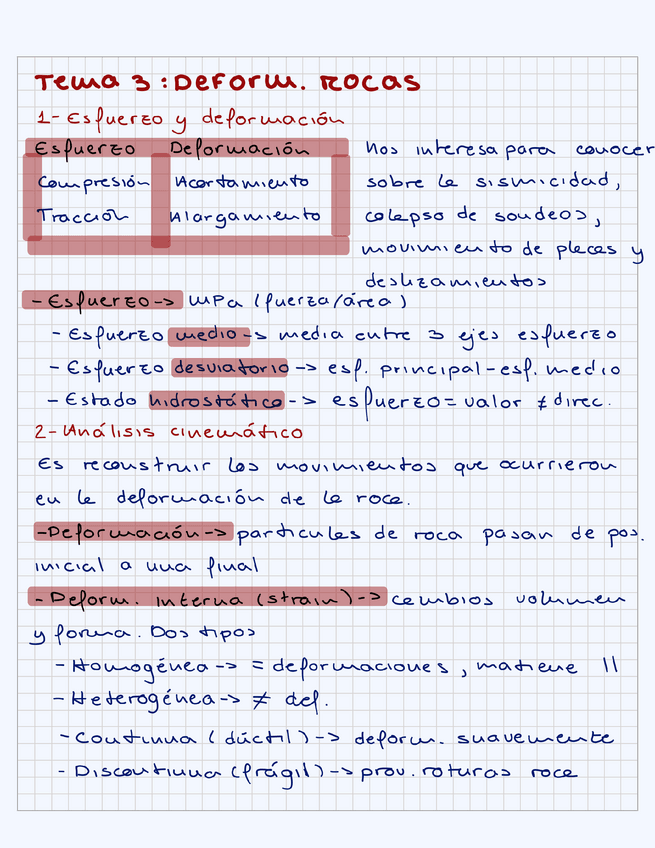 Tema 3: Deform. rocas
1- Esfuerzo y deformación
Esfuerzo Deformación
Compresión Acortamiento
Tracción Alargamiento
Nos interesa para conocer
sobre la sismicidad,
colapso de sondeos,
movimiento de placas y
deslizamientos
- Esfuerzo -> MPa (fuerza/área)
- Esfuerzo medio -> media entre 3 ejes esfuerzo
- Esfuerzo desviatorio -> esf. principal - esf. medio
- Estado hidrostático -> esfuerzo = valor ≠ direc.
2- Análisis cinemático
Es reconstruir los movimientos que ocurrieron
en la deformación de la roca.
- Deformación -> partículas de roca pasan de pos.
inicial a una final
- Deform. interna (strain) -> cambios volumen
y forma. Dos tipos
- Homogénea -> = deformaciones, matiene ||
- Heterogénea -> ≠ def.
- Continua (dúctil) -> deform. suavemente
- Discontinua (frágil) -> prov. roturas roca